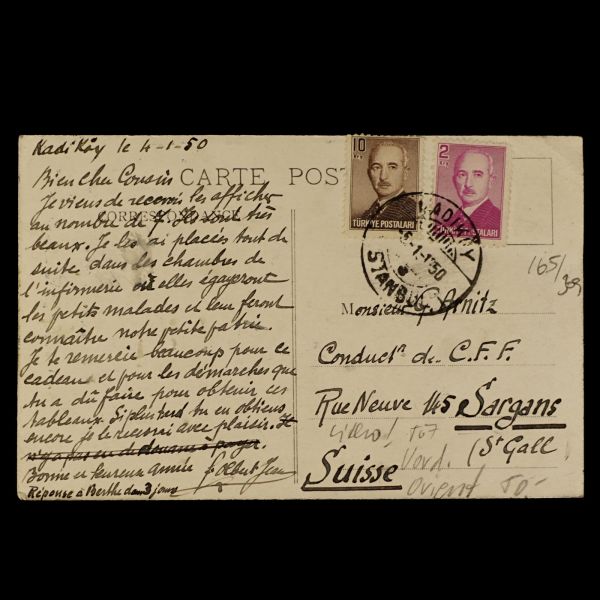 Kadi Köy le 4-1-50
CARTE POST
CORRESPONDANCE
Bien Cher Cousin
Je viens de recevoir les affiches
au nombre de 7. Ils sont très
beaux. Je les ai placés tout de
suite dans les chambres de
l'infirmerie où elles égayeront
les petits malades et leur feront
connaître notre petite patrie.
Je te remercie beaucoup pour ce
cadeau et pour les démarches que
tu a dû faire pour obtenir ces
tableaux. Si plus tard tu en obtiens
encore je le recevrai avec plaisir. Il
n'y a pas eu de douane à payer.
Bonne et heureux année f. Albert Jean
Réponse à Berthe dans 3 jours
10
KRŞ
TÜRKİYE POSTALARI
2
KRŞ
POSTALARI
KADIKÖY
6-1-1950
STANBUL
165/
Monsieur
Conductr de C.F.F.
Rue Neuve 145 Sargans
(St Gall
Suisse
Vord.
Orient